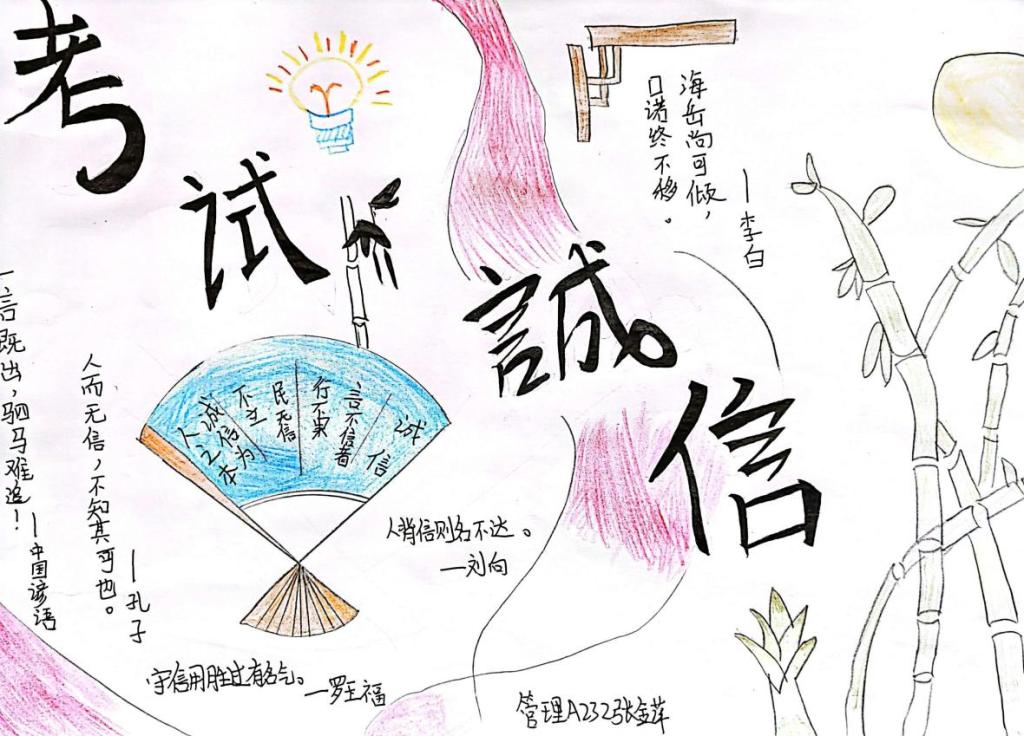 考试
誠信
海岳尚可倾，
口诺终不移。
—李白
一言既出，驷马难追！
—中国谚语
人而无信，不知其可也。
—孔子
诚信
言不信者
行不果
民无信
不立
诚信为
人之本
人背信则名不达。
—刘向
守信用胜过有名气。
—罗斯福
管理A232张金萍